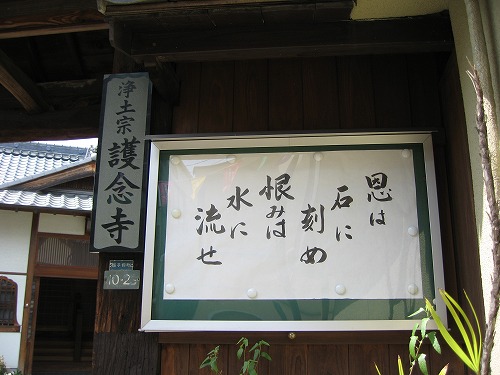 浄土宗
護念寺
10-25
恩は
石に
刻め
恨みは
水に
流せ